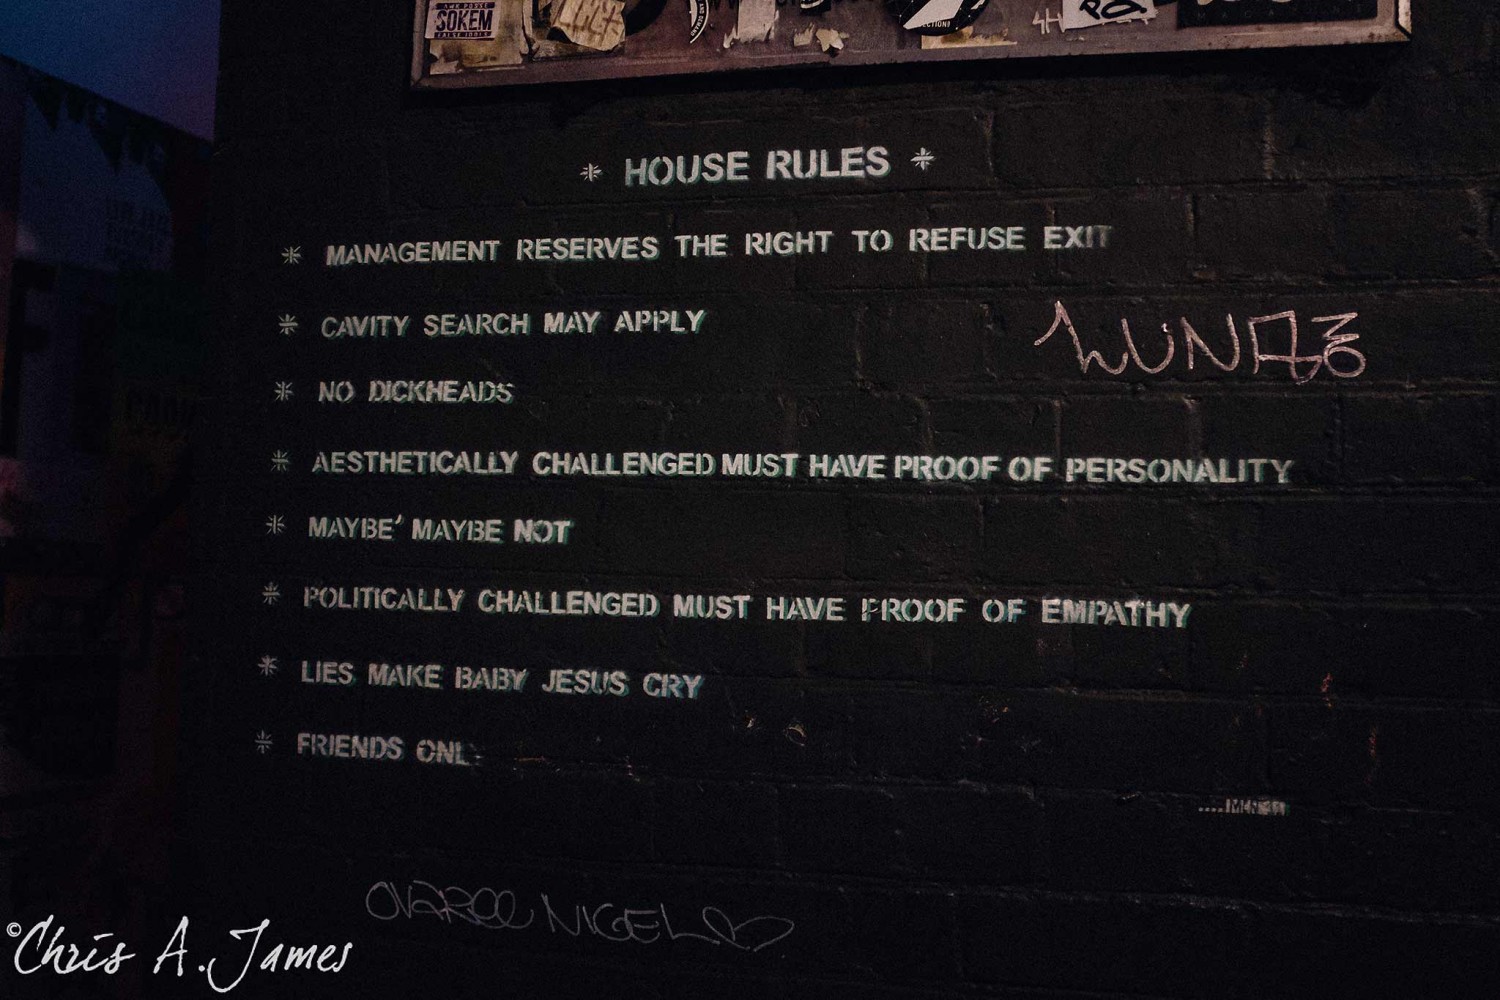 SOKEM
* HOUSE RULES *
* MANAGEMENT RESERVES THE RIGHT TO REFUSE EXIT
* CAVITY SEARCH MAY APPLY
* NO DICKHEADS
* AESTHETICALLY CHALLENGED MUST HAVE PROOF OF PERSONALITY
* MAYBE' MAYBE NOT
* POLITICALLY CHALLENGED MUST HAVE PROOF OF EMPATHY
* LIES MAKE BABY JESUS CRY
* FRIENDS ONL
NIGEL
©Chris A. James